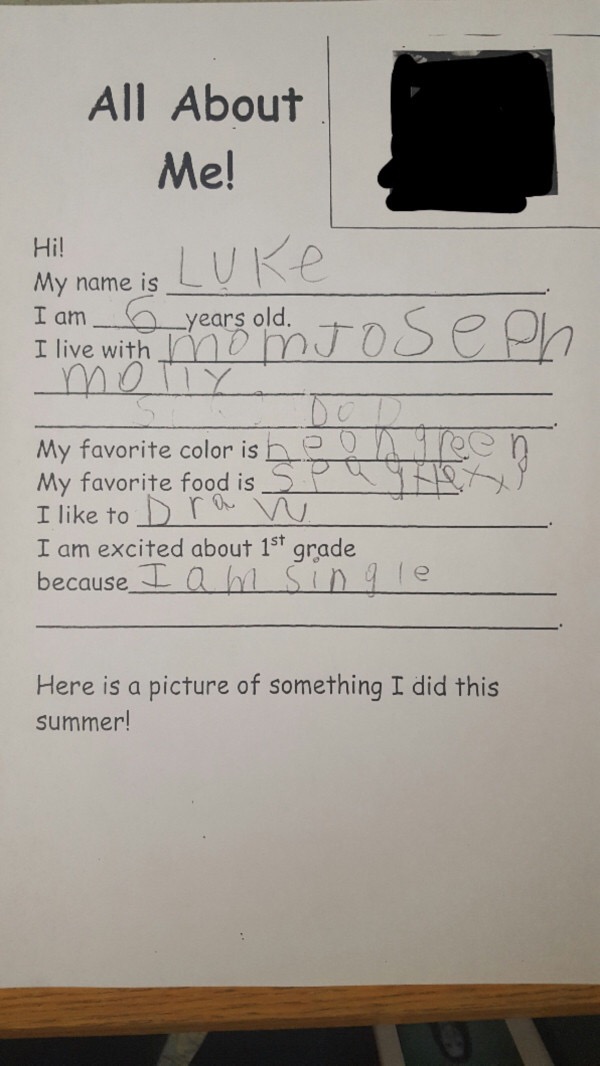 All About
Me!
Hi!
My name is LUKe.
I am 6 years old.
I live with mom Joseph
molly
DOD.
My favorite color is neon green
My favorite food is
I like to Draw.
I am excited about 1st grade
because I am single
Here is a picture of something I did this
summer!